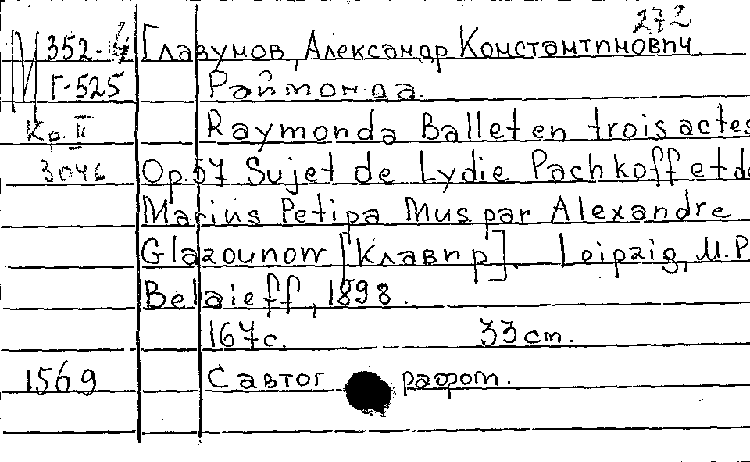 272
М352-4 Глазунов, Александр Константинович
Г-525 Раймонда.
Кр. II Raymonda Ballet en trois actes
3046 Op.57 Sujet de Lydie Pachkoff et de
Marius Petipa Mus par Alexandre
Glazounow [Клавир]. Leipzig, M.P
Belaieff, 1898.
167с. 33cm.
1569 С автографом.